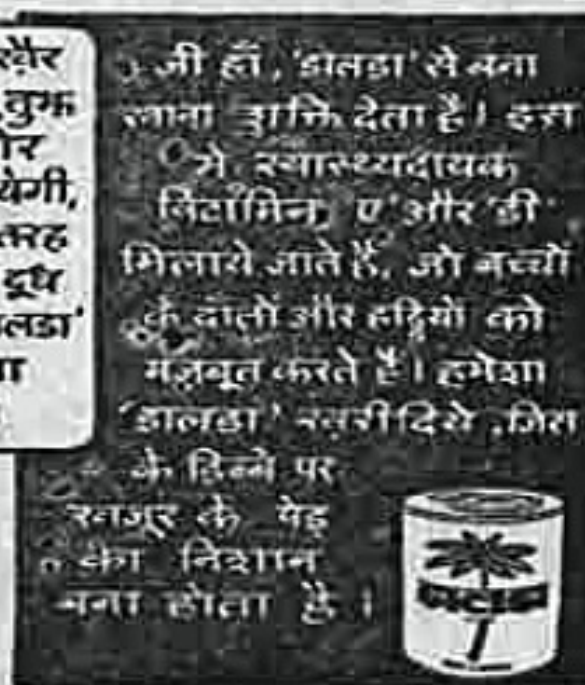 खैर
तुझ
और
येगी,
तरह
दूध
लडा'
जी हाँ, 'डालडा' से बना
खाना शक्ति देता है। इस
में स्वास्थ्यदायक
विटामिन 'ए' और 'डी'
मिलाये जाते हैं, जो बच्चों
के दातों और हड्डियों को
मज़बूत करते हैं। हमेशा
'डालडा' खरीदिये, जिस
के डिब्बे पर
खजूर के पेड़
का निशान
बना होता है।